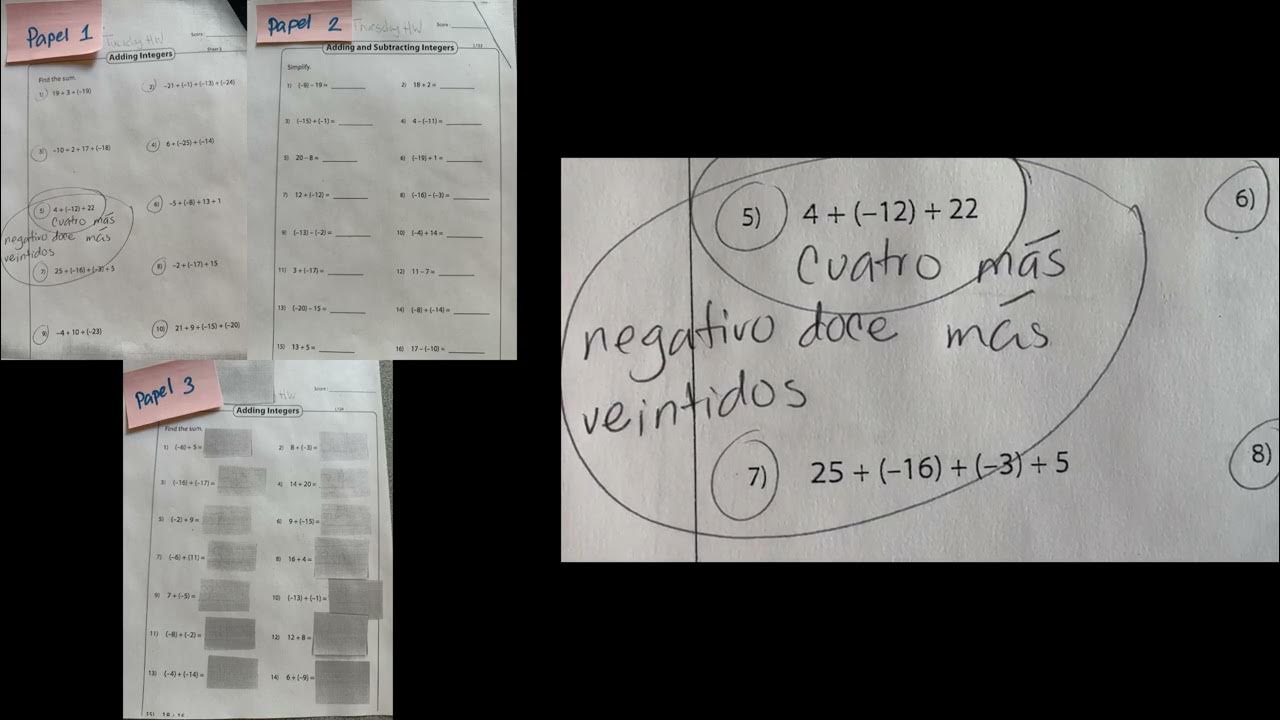 Papel 1
Tuesday HW
Score :
Adding Integers
Sheet 3
Find the sum.
1) 19 + 3 + (-19)
2) -21 + (-1) + (-13) + (-24)
3) -10 + 2 + 17 + (-18)
4) 6 + (-25) + (-14)
5) 4 + (-12) + 22
cuatro más
negativo doce más
veintidos
6) -5 + (-8) + 13 + 1
7) 25 + (-16) + (-3) + 5
8) -2 + (-17) + 15
9) -4 + 10 + (-23)
10) 21 + 9 + (-15) + (-20)
Papel 2
Thursday HW
Score :
Adding and Subtracting Integers
L1S2
Simplify.
1) (-9) - 19 =
2) 18 + 2 =
3) (-15) + (-1) =
4) 4 - (-11) =
5) 20 - 8 =
6) (-19) + 1 =
7) 12 + (-12) =
8) (-16) - (-3) =
9) (-13) - (-2) =
10) (-4) + 14 =
11) 3 + (-17) =
12) 11 - 7 =
13) (-20) - 15 =
14) (-8) + (-14) =
15) 13 + 5 =
16) 17 - (-10) =
Papel 3
HW
Score :
Adding Integers
L1S4
Find the sum.
1) (-6) + 5 =
2) 8 + (-3) =
3) (-16) + (-17) =
4) 14 + 20 =
5) (-2) + 9 =
6) 9 + (-15) =
7) (-6) + (11) =
8) 16 + 4 =
9) 7 + (-5) =
10) (-13) + (-1) =
11) (-8) + (-2) =
12) 12 + 8 =
13) (-4) + (-14) =
14) 6 + (-9) =
5) 4 + (-12) + 22
cuatro más
negativo doce más
veintidos
6)
7) 25 + (-16) + (-3) + 5
8)